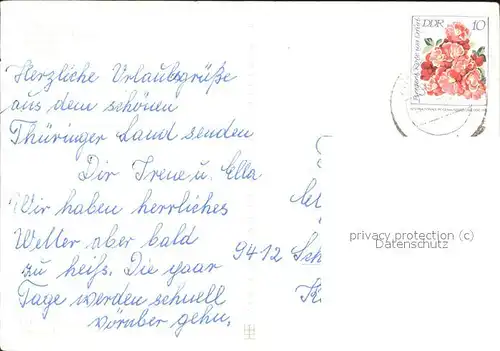 Herzliche Urlaubsgrüße
aus dem schönen
Thüringer Land senden
Dir Irene u. Ella
Wir haben herrliches
Wetter aber bald
zu heiß. Die paar
Tage werden schnell
vorüber gehn.
9412 Sch
DDR 10
privacy protection (c)
Datenschutz